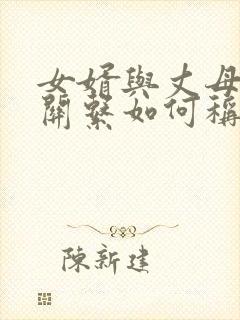 女婿與丈母
關繫如何稱
陳新建